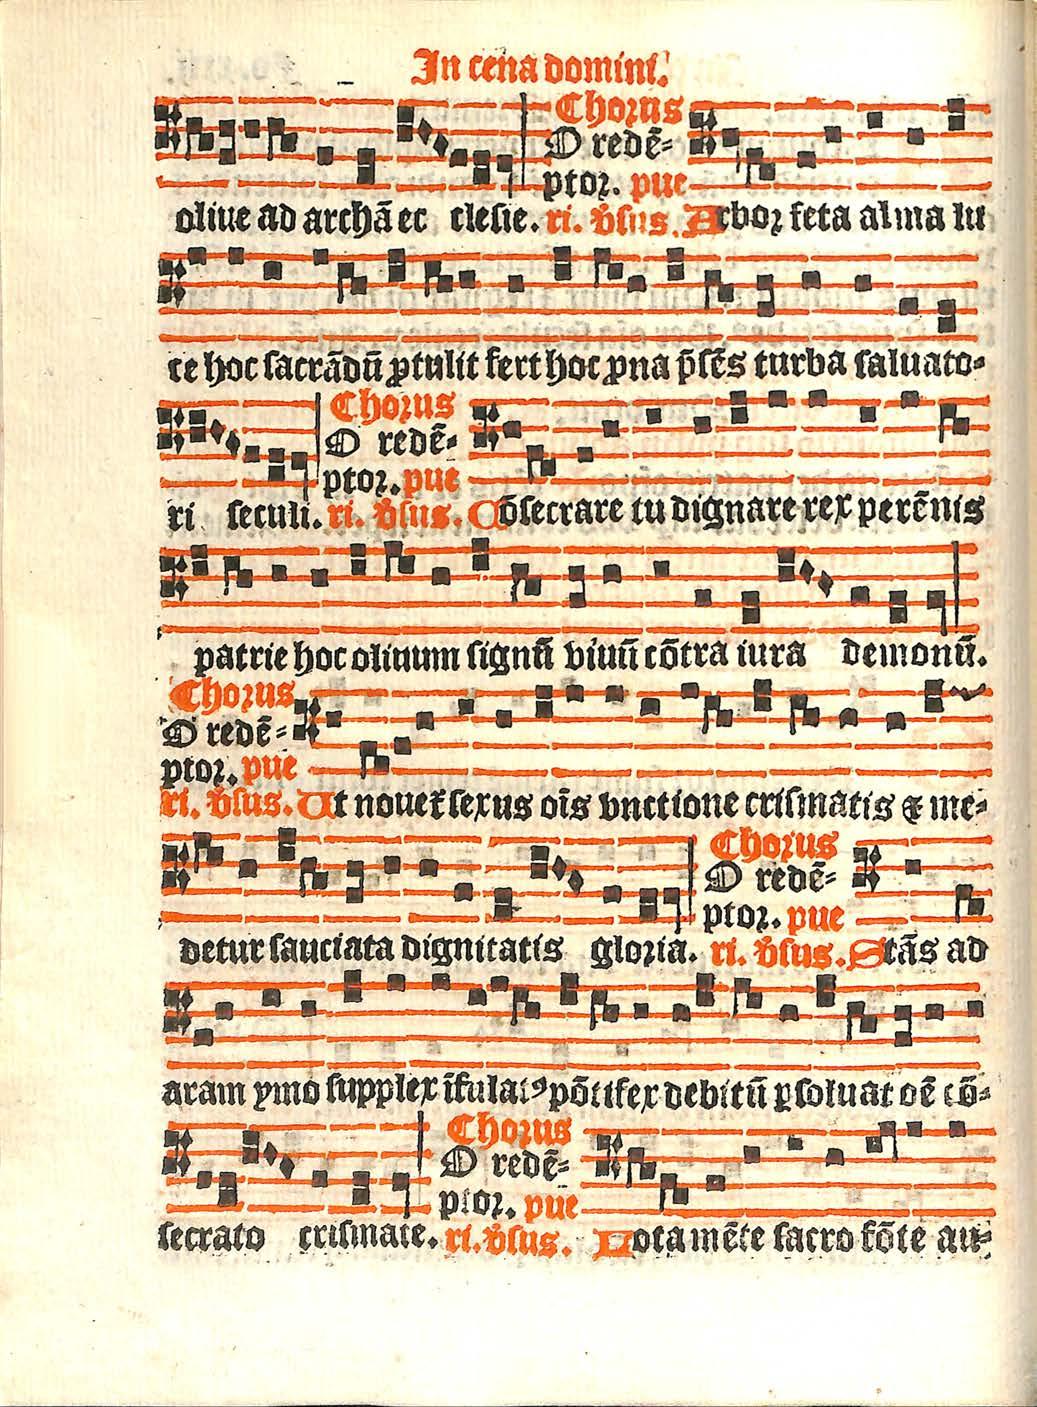 In cena domini.
Chorus
O redẽ-
ptoꝛ. pue
oliue ad archã ec clesie. ri. v̾sus. Arboꝛ feta alma lu
ce hoc sacrãdũ ꝓtulit fert hoc ꝓna p̃sẽs turba saluato-
Chorus
O redẽ-
ptoꝛ. pue
ri seculi. ri. v̾sus. Cõsecrare tu dignare rex perẽnis
patrie hoc oliuum signũ viuũ cõtra iura demonũ.
Chorus
O redẽ-
ptoꝛ. pue
ri. v̾sus. Ut nouer̃ sexus oĩs vnctione crismatis ⁊ me-
Chorus
O redẽ-
ptoꝛ. pue
detur sauciata dignitatis gloꝛia. ri. v̾sus. Stãs ad
aram ymo supplex ĩfulatꝰ põtifex debitũ ꝑsoluat oẽ cõ-
Chorus
O redẽ-
ptoꝛ. pue
secrato crismate. ri. v̾sus. Lota mẽte sacro fõte au-